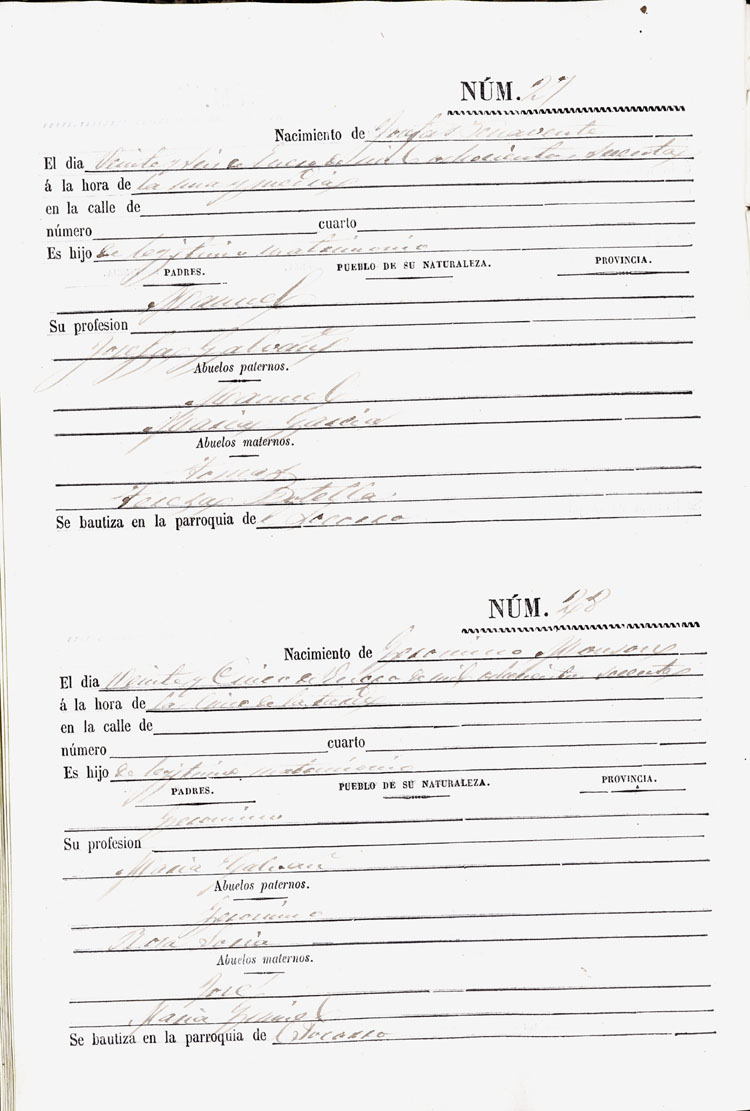 NÚM. 27
Nacimiento de Josefa Benavente
El dia Veinte y seis de Enero de mil ochocientos sesenta
á la hora de la una y media
en la calle de
número cuarto
Es hijo de legitimo matrimonio
PADRES. PUEBLO DE SU NATURALEZA. PROVINCIA.
Manuel
Su profesion
Josefa Galvañ
Abuelos paternos.
Manuel
Maria Garcia
Abuelos maternos.
Tomas
Botella
Se bautiza en la parroquia de Socorro
NÚM. 28
Nacimiento de Geronimo Monsong
El dia Veinte y Cinco de Enero de mil ochocientos sesenta
á la hora de la de la tarde
en la calle de
número cuarto
Es hijo de legitimo matrimonio
PADRES. PUEBLO DE SU NATURALEZA. PROVINCIA.
Geronimo
Su profesion
Maria Galvañ
Abuelos paternos.
Geronimo
Rosa Soria
Abuelos maternos.
José
Maria
Se bautiza en la parroquia de Socorro